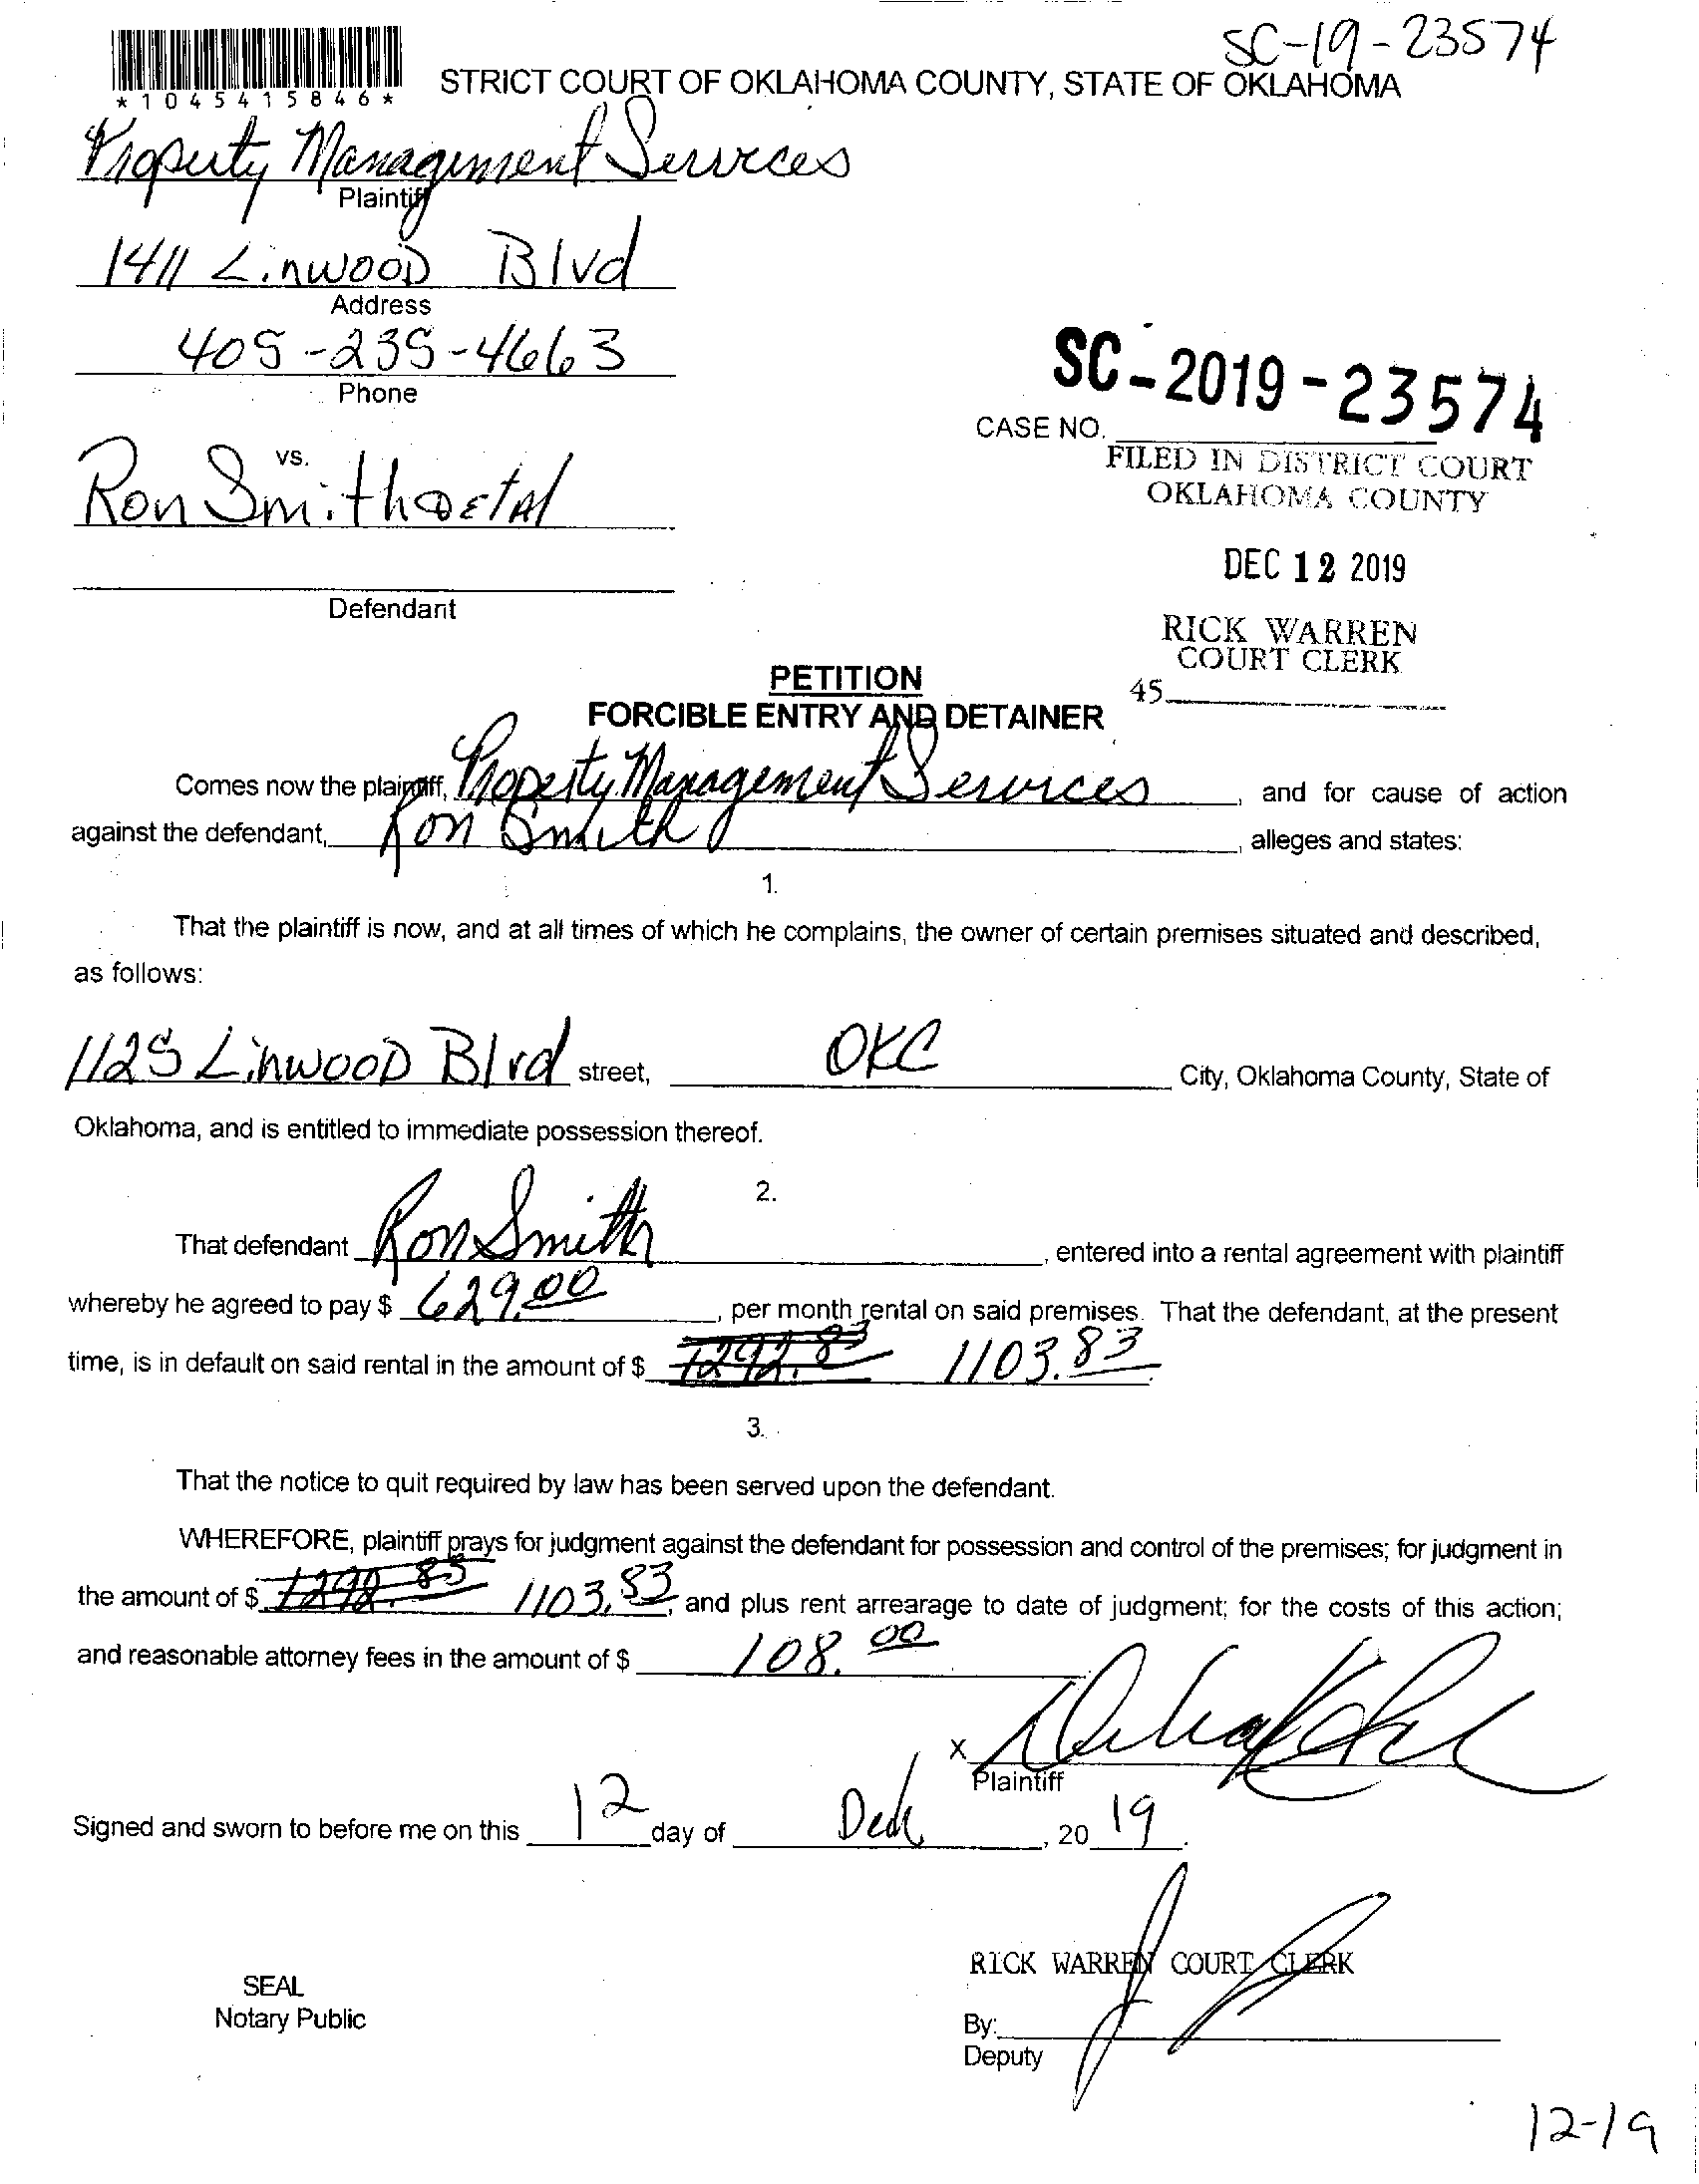 SC-19-23574
*1045415846*
STRICT COURT OF OKLAHOMA COUNTY, STATE OF OKLAHOMA
Property Management Services
Plaintiff
1411 Linwood Blvd
Address
405-235-4663
Phone
SC-2019-23574
CASE NO.
vs.
FILED IN DISTRICT COURT
OKLAHOMA COUNTY
Ron Smith et al
DEC 12 2019
Defendant
RICK WARREN
COURT CLERK
45
PETITION
FORCIBLE ENTRY AND DETAINER
Comes now the plaintiff, Property Management Services, and for cause of action
against the defendant, Ron Smith, alleges and states:
1.
That the plaintiff is now, and at all times of which he complains, the owner of certain premises situated and described,
as follows:
1125 Linwood Blvd street, OKC City, Oklahoma County, State of
Oklahoma, and is entitled to immediate possession thereof.
2.
That defendant Ron Smith, entered into a rental agreement with plaintiff
whereby he agreed to pay $ 629.00, per month rental on said premises. That the defendant, at the present
time, is in default on said rental in the amount of $ 1103.83.
3.
That the notice to quit required by law has been served upon the defendant.
WHEREFORE, plaintiff prays for judgment against the defendant for possession and control of the premises; for judgment in
the amount of $ 1103.83, and plus rent arrearage to date of judgment; for the costs of this action;
and reasonable attorney fees in the amount of $ 108.00
X
Plaintiff
Signed and sworn to before me on this 12 day of Dec, 20 19.
RICK WARREN COURT CLERK
SEAL
Notary Public
By:
Deputy
12-19